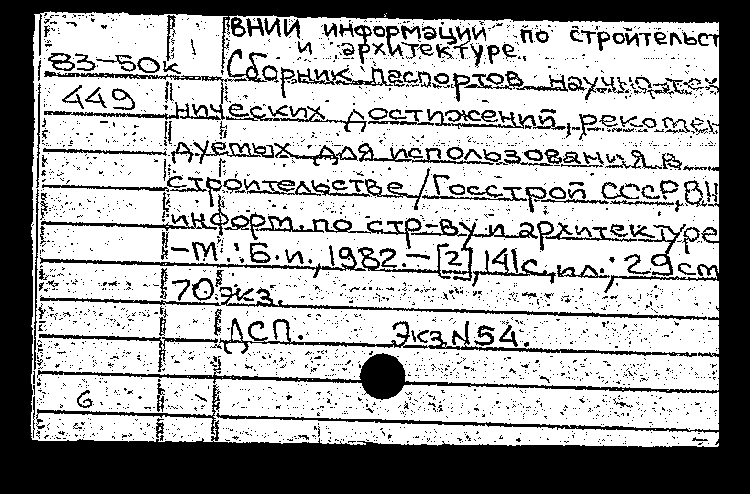 ВНИИ информации по строительст
и архитектуре.
83-50к Сборник паспортов научно-тех
449 нических достижений, рекомен
дуемых для использования в
строительстве/Госстрой СССР, ВН
информ. по стр-ву и архитектуре
-М.: Б.и., 1982. - [2], 141с., ил.; 29см
70экз.
ДСП. Экз N54.
6